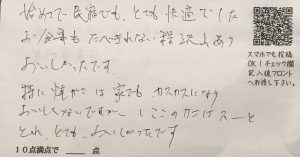 始めてで民宿でも、とても快適でした
お食事もたべきれない程沢山あり
おいしかったです
特に焼がには家でもカスカスになり
おいしくないですが、ここのカニはスーと
とれ、とても、おいしかったです
10点満点で 点
スマホでも投稿
OK!チェック欄
記入後フロント
へお渡し下さい。